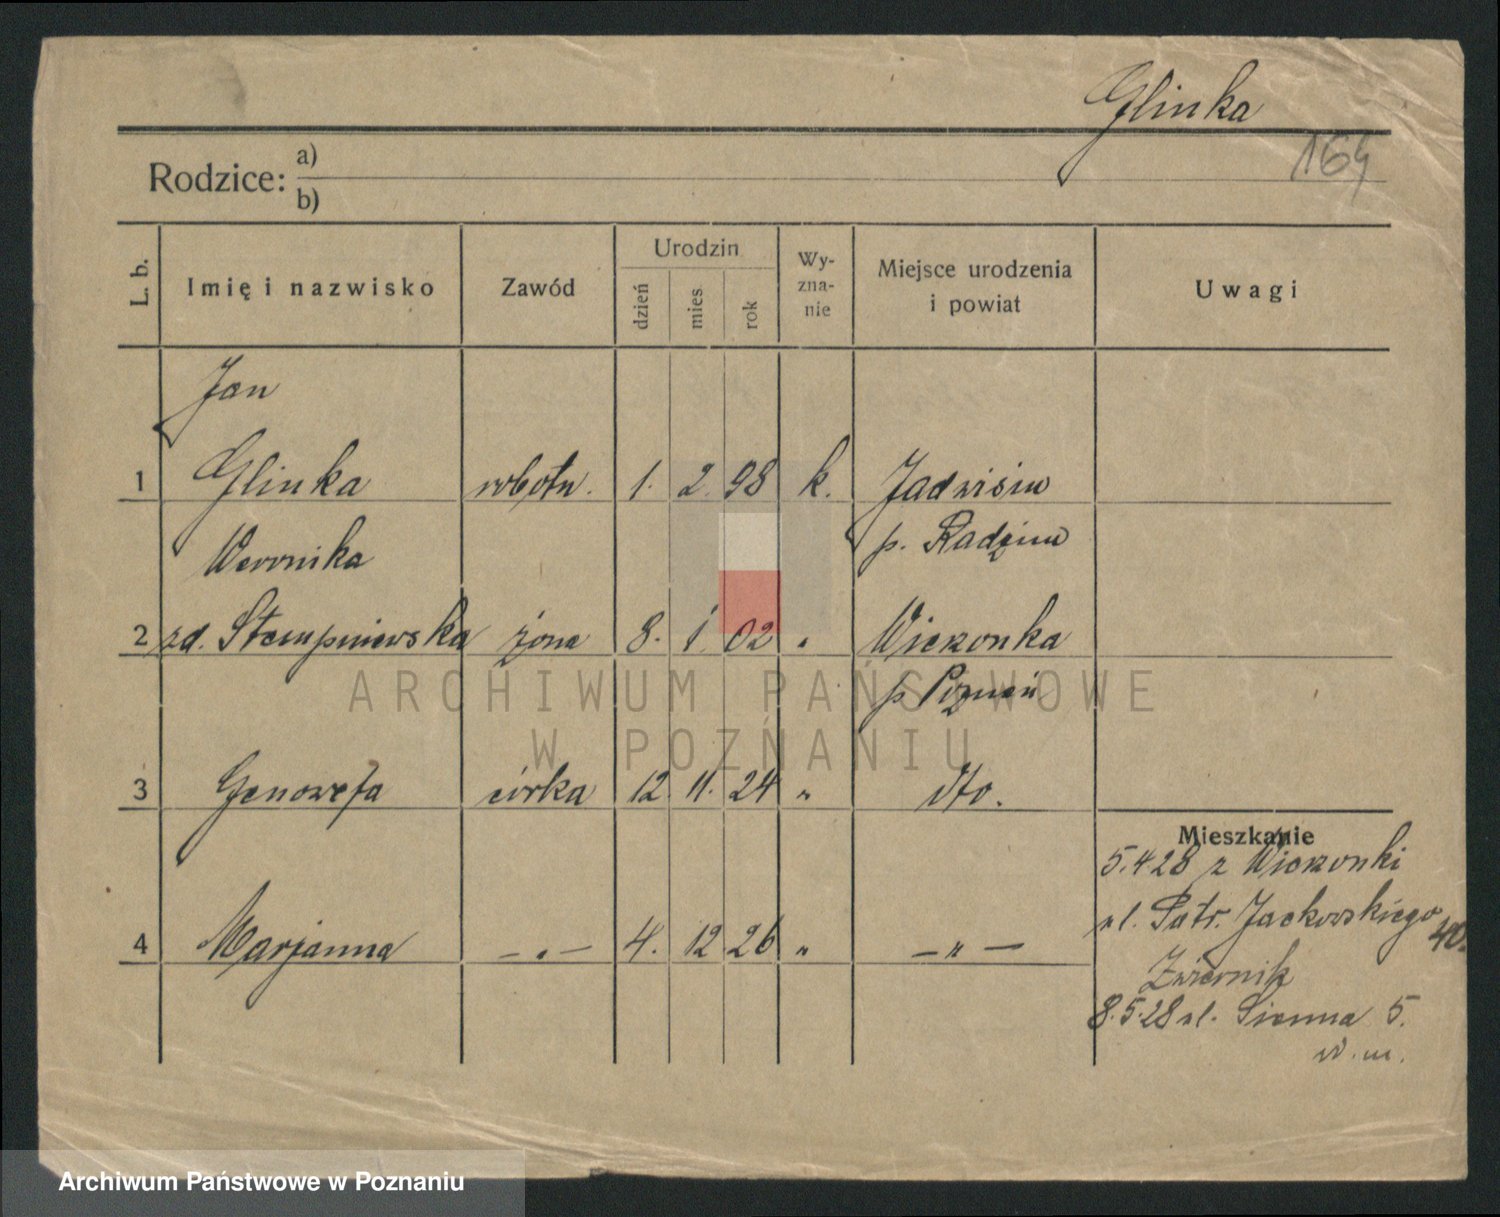 Glinka
164
Rodzice: a)
b)
L. b.
Imię i nazwisko
Zawód
Urodzin
dzień
mies
rok
Wy-
zna-
nie
Miejsce urodzenia
i powiat
Uwagi
Jan
1 Glinka robotn. 1. 2. 98 k. Jadwisin
Weronika p. Radzim
2 zd. Stempniewska żona 8. 1. 02 " Wierzonka
p. Poznań
3 Genowefa córka 12. 11. 24 " dto.
Mieszkanie
5.4.28 z Wierzonki
ul. Patr. Jackowskiego 40.
4 Marjanna — " — 4. 12 26 " — " —
Zwiernik
8.5.28 ul. Sienna 5.
w. m.
ARCHIWUM PAŃSTWOWE
W POZNANIU
Archiwum Państwowe w Poznaniu